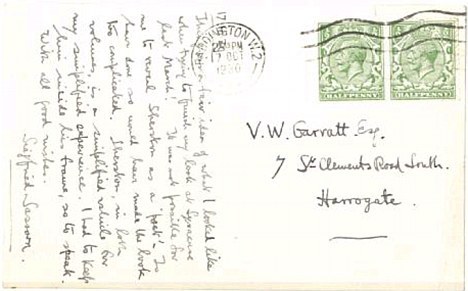 This gives a fair idea of what I looked like
when trying to finish my book at Syracuse
last March. It was not possible for
me to reveal Sherston as a 'poet'. To
have done so would have made the book
too complicated. Sherston, in both
volumes, is a simplified vehicle for
my simplified experience. I had to keep
him inside his frame, so to speak.
With all good wishes.
Siegfried Sassoon.
PADDINGTON. W.2
PM
OCT
1930
HALFPENNY
HALFPENNY
V. W. Garratt Esq.
7 St. Clements Road South.
Harrogate.